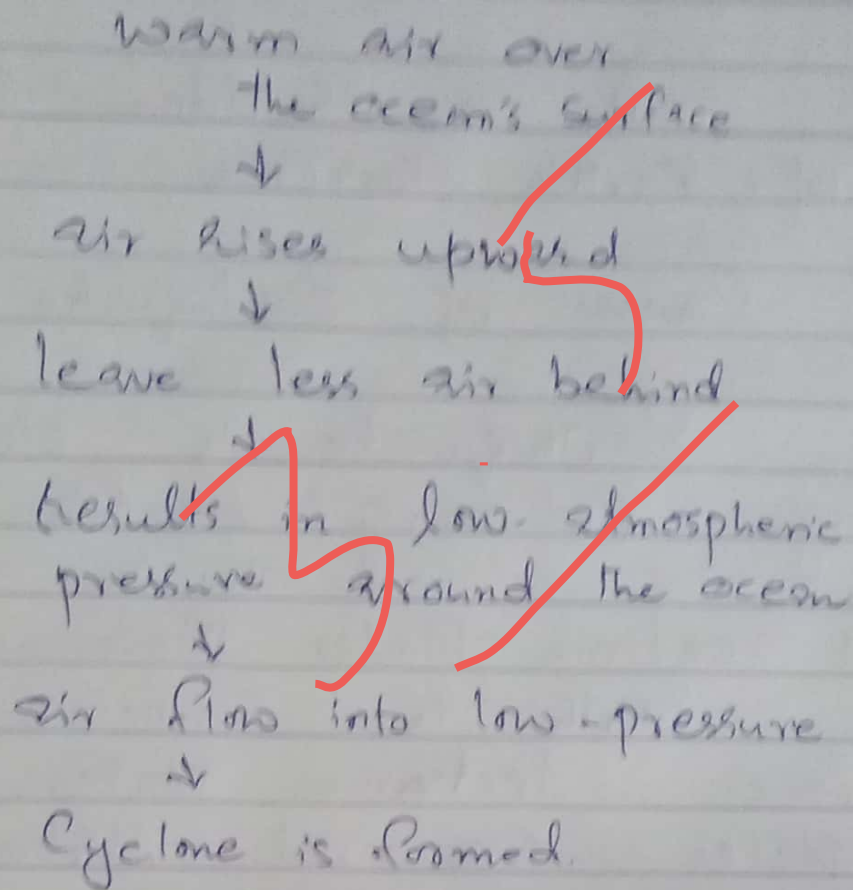 warm air over
the ocean's surface
↓
air rises upward
↓
leave less air behind
↓
Results in low atmospheric
pressure around the ocean
↓
air flow into low-pressure
↓
Cyclone is formed.